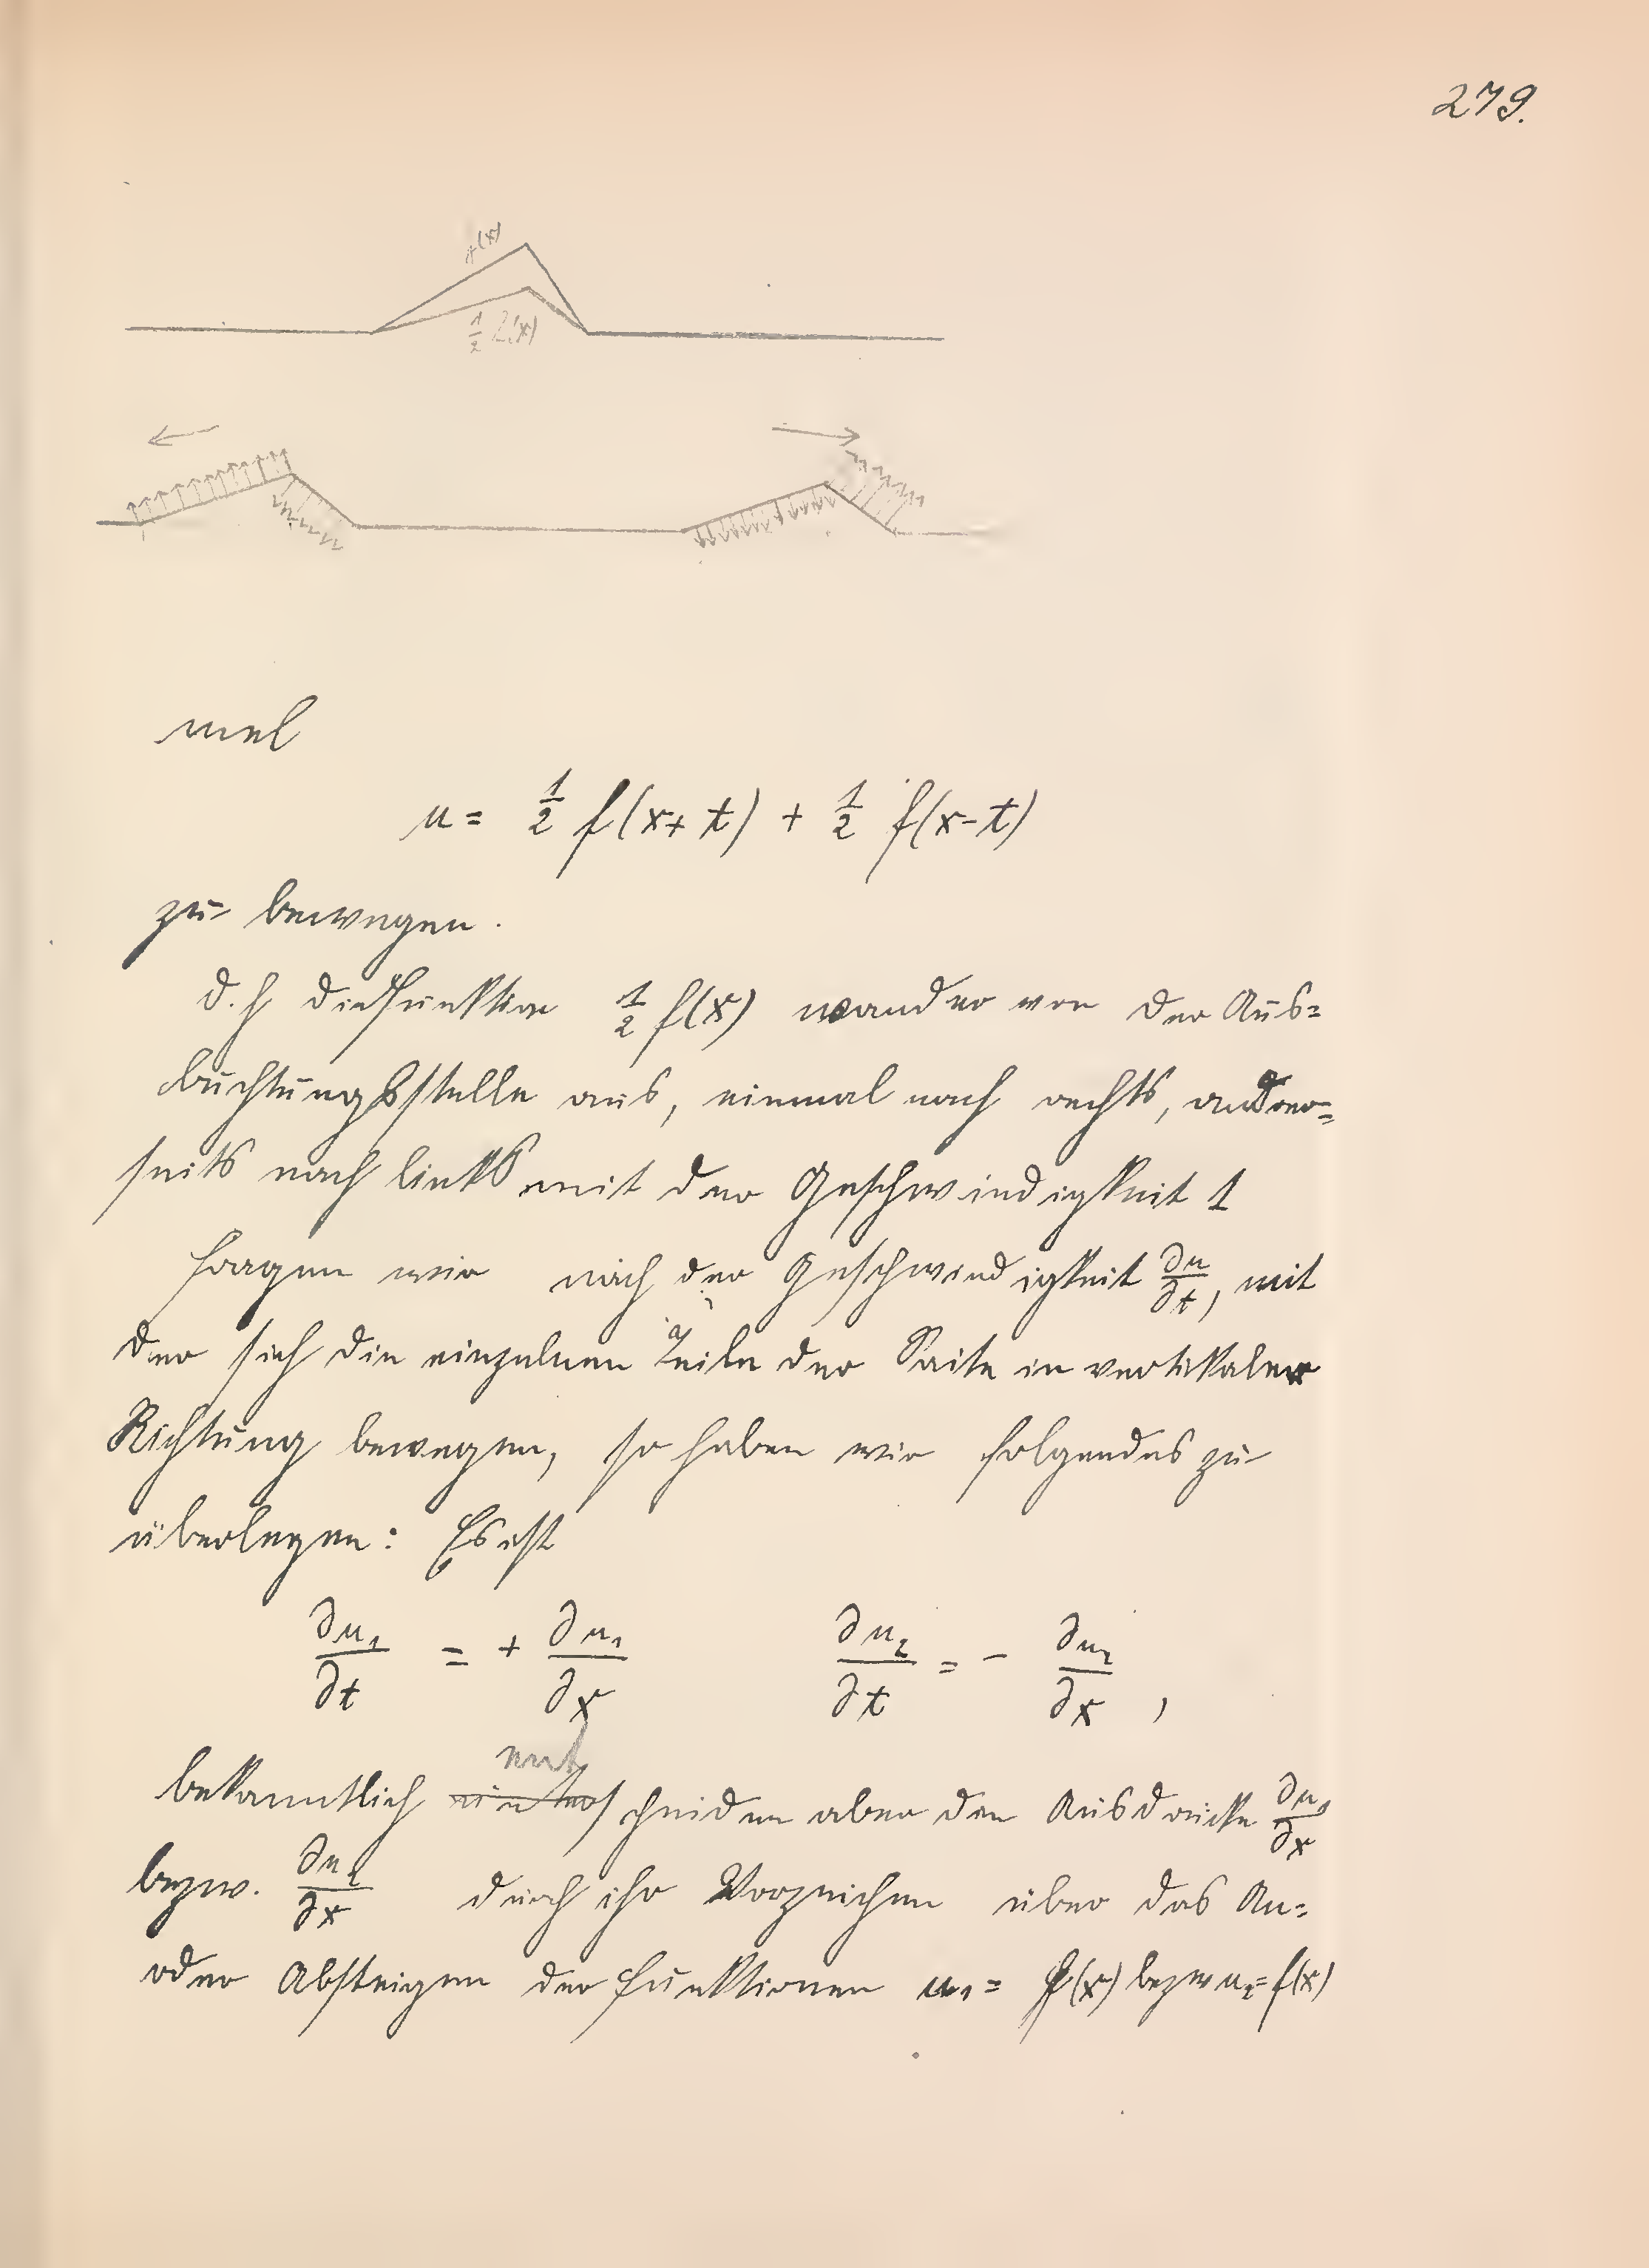 279.
f(x)
1/2 f(x)
mel
u = 1/2 f(x+t) + 1/2 f(x-t)
zu bewegen.
d.h die Funktion 1/2 f(x) wander von der Aus=
buchtungsstelle aus, einmal nach rechts, andrer=
seits nach links mit der Geschwindigkeit 1
Fragen wir nach der Geschwindigkeit ∂u/∂t, mit
der sich die einzelnen Teile der Saite in vertikaler
Richtung bewegen, so haben wir folgendes zu
überlegen: Es ist
∂u₁/∂t = + ∂u₁/∂x ∂u₂/∂t = - ∂u₂/∂x ,
ent
bekanntlich scheiden aber den Ausdrücke ∂u₁/∂x
bezw. ∂u₂/∂x durch ihr Vorzeichen über das An=
oder Absteigen der Funktionen u₁ = f(x) bezw u₂ = f(x)